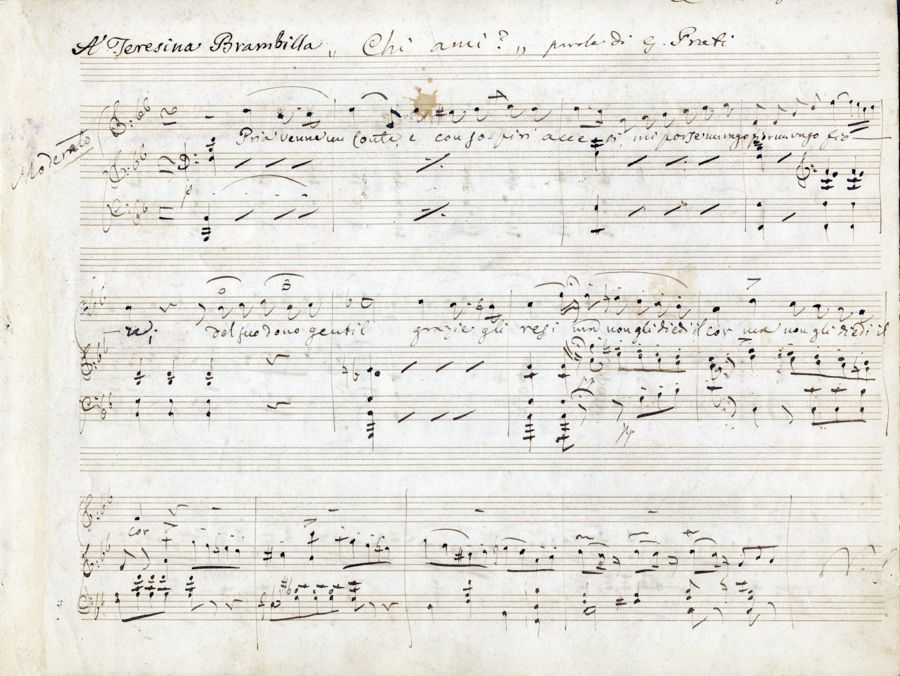 A' Teresina Brambilla „ Chi ami? „ parole di G. Prati
Moderato
Pria venne un Conte, e con sospiri accenti, mi porse un vago
re; del suo dono gentil grazie gli resi ma non gli diedi il cor ma non gli diedi il
pp
cor